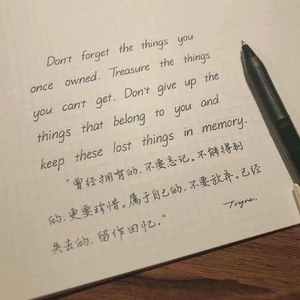 Don't forget the things you
once owned. Treasure the things
you can't get. Don't give up the
things that belong to you and
keep these lost things in memory.
"曾经拥有的,不要忘记。不能得到
的,更要珍惜。属于自己的,不要放弃。已经
失去的,留作回忆。"